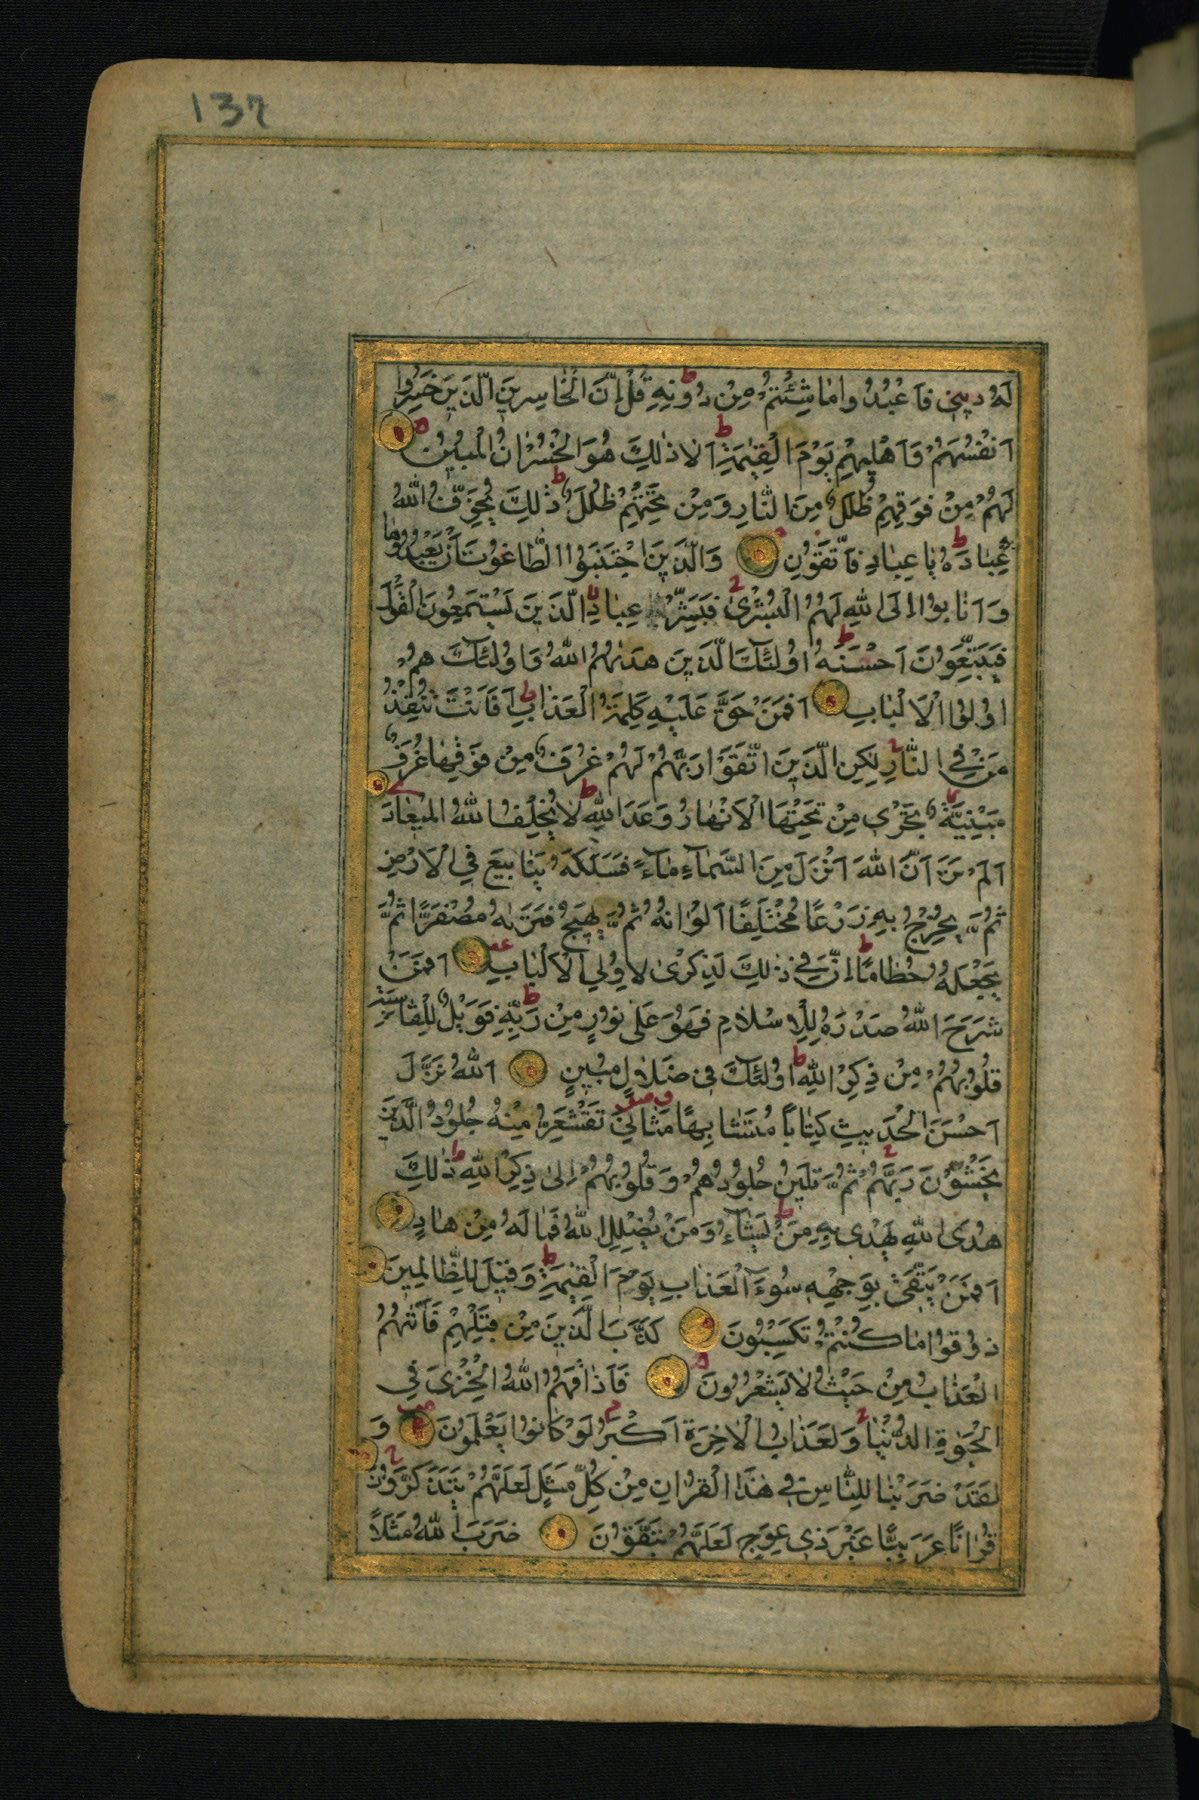 137
لَهُ دينى فَاعْبُدُوا مَا شِئْتُمْ مِنْ دُونِهِ قُلْ اِنَّ الْخَاسِرينَ الَّذينَ خَسِرُوا
اَنْفُسَهُمْ وَاَهْليهِمْ يَوْمَ الْقِيٰمَةِ اَلَا ذٰلِكَ هُوَ الْخُسْرَانُ الْمُبينُ
لَهُمْ مِنْ فَوْقِهِمْ ظُلَلٌ مِنَ النَّارِ وَمِنْ تَحْتِهِمْ ظُلَلٌ ذٰلِكَ يُخَوِّفُ اللهُ
بِهِ عِبَادَهُ يَا عِبَادِ فَاتَّقُونِ وَالَّذينَ اجْتَنَبُوا الطَّاغُوتَ اَنْ يَعْبُدُوهَا
وَاَنَابُوا اِلَى اللهِ لَهُمُ الْبُشْرٰى فَبَشِّرْ عِبَادِ الَّذينَ يَسْتَمِعُونَ الْقَوْلَ
فَيَتَّبِعُونَ اَحْسَنَهُ اُولٰئِكَ الَّذينَ هَدٰيهُمُ اللهُ وَاُولٰئِكَ هُمْ
اُولُوا الْاَلْبَابِ اَفَمَنْ حَقَّ عَلَيْهِ كَلِمَةُ الْعَذَابِ اَفَاَنْتَ تُنْقِذُ
مَنْ فِي النَّارِ لٰكِنِ الَّذينَ اتَّقَوْا رَبَّهُمْ لَهُمْ غُرَفٌ مِنْ فَوْقِهَا غُرَفٌ
مَبْنِيَّةٌ تَجْرى مِنْ تَحْتِهَا الْاَنْهَارُ وَعْدَ اللهِ لَا يُخْلِفُ اللهُ الْميعَادَ
اَلَمْ تَرَ اَنَّ اللهَ اَنْزَلَ مِنَ السَّمَاءِ مَاءً فَسَلَكَهُ يَنَابيعَ فِي الْاَرْضِ
ثُمَّ يُخْرِجُ بِهِ زَرْعًا مُخْتَلِفًا اَلْوَانُهُ ثُمَّ يَهيجُ فَتَرٰيهُ مُصْفَرًّا ثُمَّ
يَجْعَلُهُ حُطَامًا اِنَّ في ذٰلِكَ لَذِكْرٰى لِاُولِي الْاَلْبَابِ اَفَمَنْ
شَرَحَ اللهُ صَدْرَهُ لِلْاِسْلَامِ فَهُوَ عَلٰى نُورٍ مِنْ رَبِّهِ فَوَيْلٌ لِلْقَاسِيَةِ
قُلُوبُهُمْ مِنْ ذِكْرِ اللهِ اُولٰئِكَ فى ضَلَالٍ مُبينٍ اَللهُ نَزَّلَ
اَحْسَنَ الْحَديثِ كِتَابًا مُتَشَابِهًا مَثَانِيَ تَقْشَعِرُّ مِنْهُ جُلُودُ الَّذينَ
يَخْشَوْنَ رَبَّهُمْ ثُمَّ تَلينُ جُلُودُهُمْ وَقُلُوبُهُمْ اِلٰى ذِكْرِ اللهِ ذٰلِكَ
هُدَى اللهِ يَهْدى بِهِ مَنْ يَشَاءُ وَمَنْ يُضْلِلِ اللهُ فَمَا لَهُ مِنْ هَادٍ
اَفَمَنْ يَتَّقى بِوَجْهِهِ سُوءَ الْعَذَابِ يَوْمَ الْقِيٰمَةِ وَقيلَ لِلظَّالِمينَ
ذُوقُوا مَا كُنْتُمْ تَكْسِبُونَ كَذَّبَ الَّذينَ مِنْ قَبْلِهِمْ فَاَتٰيهُمُ
الْعَذَابُ مِنْ حَيْثُ لَا يَشْعُرُونَ فَاَذَاقَهُمُ اللهُ الْخِزْيَ فِي
الْحَيٰوةِ الدُّنْيَا وَلَعَذَابُ الْاٰخِرَةِ اَكْبَرُ لَوْ كَانُوا يَعْلَمُونَ وَ
لَقَدْ ضَرَبْنَا لِلنَّاسِ في هٰذَا الْقُرْاٰنِ مِنْ كُلِّ مَثَلٍ لَعَلَّهُمْ يَتَذَكَّرُونَ
قُرْاٰنًا عَرَبِيًّا غَيْرَ ذى عِوَجٍ لَعَلَّهُمْ يَتَّقُونَ ضَرَبَ اللهُ مَثَلًا